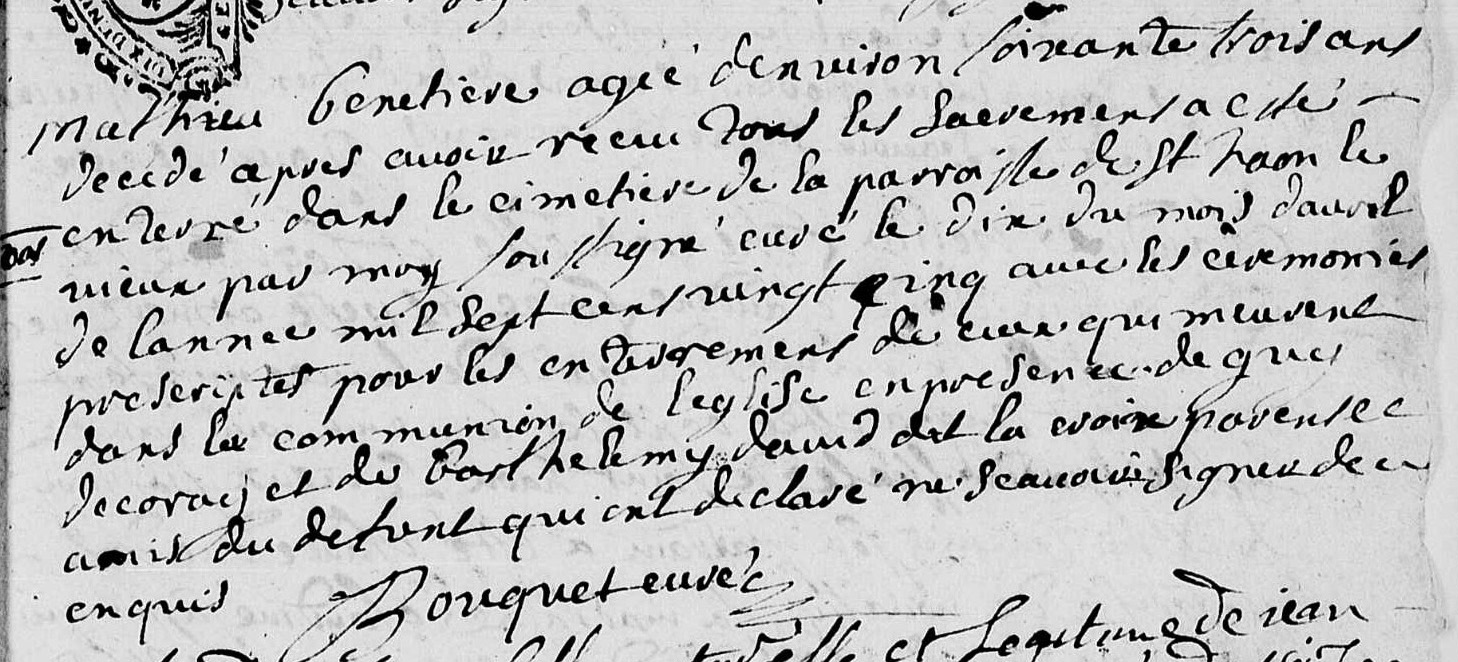 mathieu benetiere agéé denviron soixante trois ans
decedé apres auoir recu tous les sacremens a esté
enterré dans le cimetiere de la parroisse de st haon le
vieux par moy soussigné curé le dix du mois dauril
de lannee mil sept cens vingt cinq auec les cèremonies
prescriptes pour les enterremens de ceux qui meurent
dans la communion de leglise en presence de guy
decoray et de barthelemy dauid dit la croix parens et
amis du defunt qui ont declaré ne scauoir signer de ce
enquis Bouquet curé
et de jean